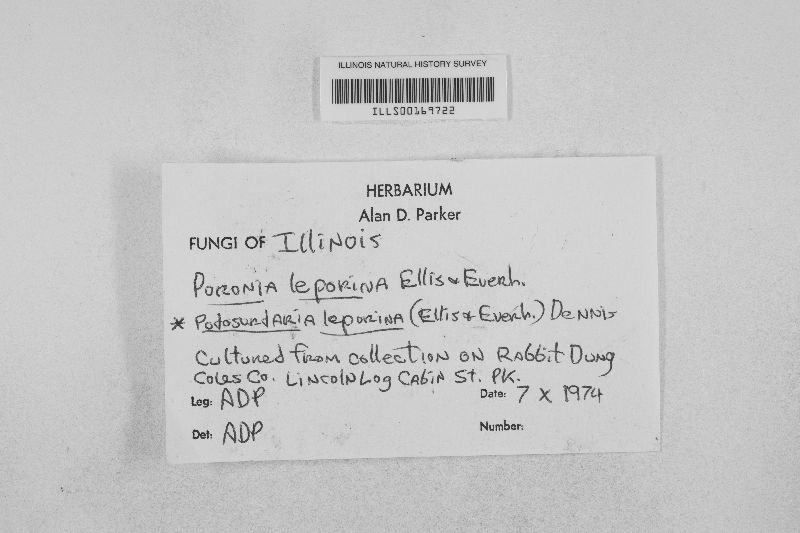 ILLINOIS NATURAL HISTORY SURVEY
ILLS00169722
HERBARIUM
Alan D. Parker
FUNGI OF Illinois
Poronia leporina Ellis & Everh.
* Podosordaria leporina (Ellis & Everh.) Dennis
Cultured from collection on Rabbit Dung
Coles Co. Lincoln Log Cabin St. Pk.
Leg: ADP Date: 7 X 1974
Det: ADP Number: